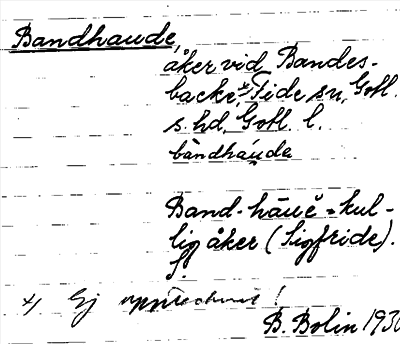 Bandhaude,
åker vid Bandes-
backe,x) Fide sn, Gotl.
s. hd, Gotl. l.
bàndhaùda
Band-hāuĕ = kul-
lig åker (Sigfride).
S.
x) Ej upptecknat!
B. Bolin 1930